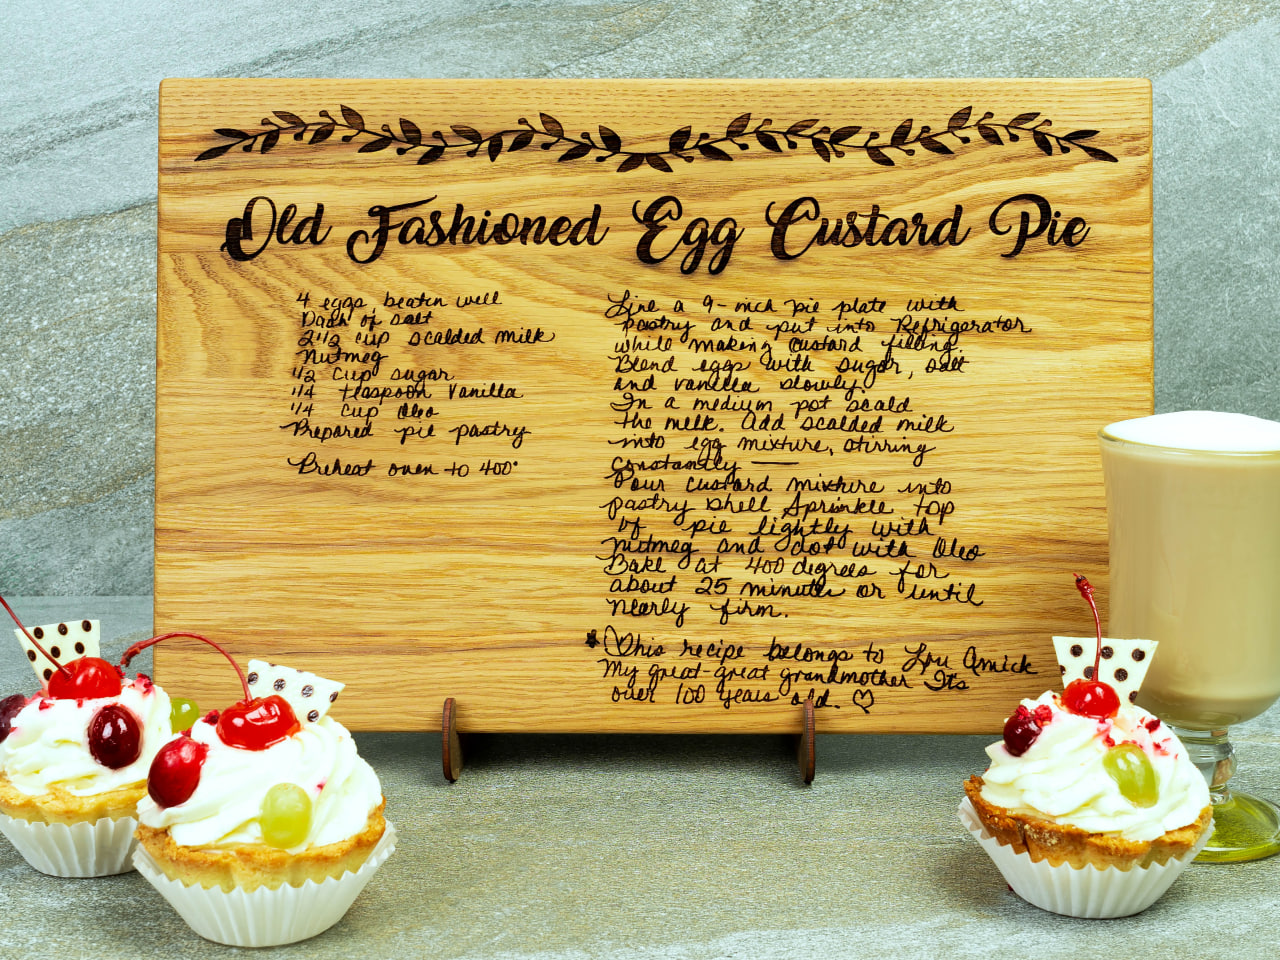 Old Fashioned Egg Custard Pie
4 eggs, beaten well
Dash of salt
2 1/2 cup scalded milk
Nutmeg
1/2 cup sugar
1/4 teaspoon Vanilla
1/4 cup Oleo
Prepared pie pastry
Preheat oven to 400°
Line a 9-inch pie plate with
pastry and put into Refrigerator
while making custard filling.
Blend eggs with sugar, salt
and vanilla slowly.
In a medium pot scald
the milk. Add scalded milk
into egg mixture, stirring
constantly —
Pour custard mixture into
pastry shell Sprinkle top
of pie lightly with
nutmeg and dot with Oleo
Bake at 400 degrees for
about 25 minutes or until
nearly firm.
*♡This recipe belongs to Lou Amick
My great-great grandmother Its
over 100 years old. ♡